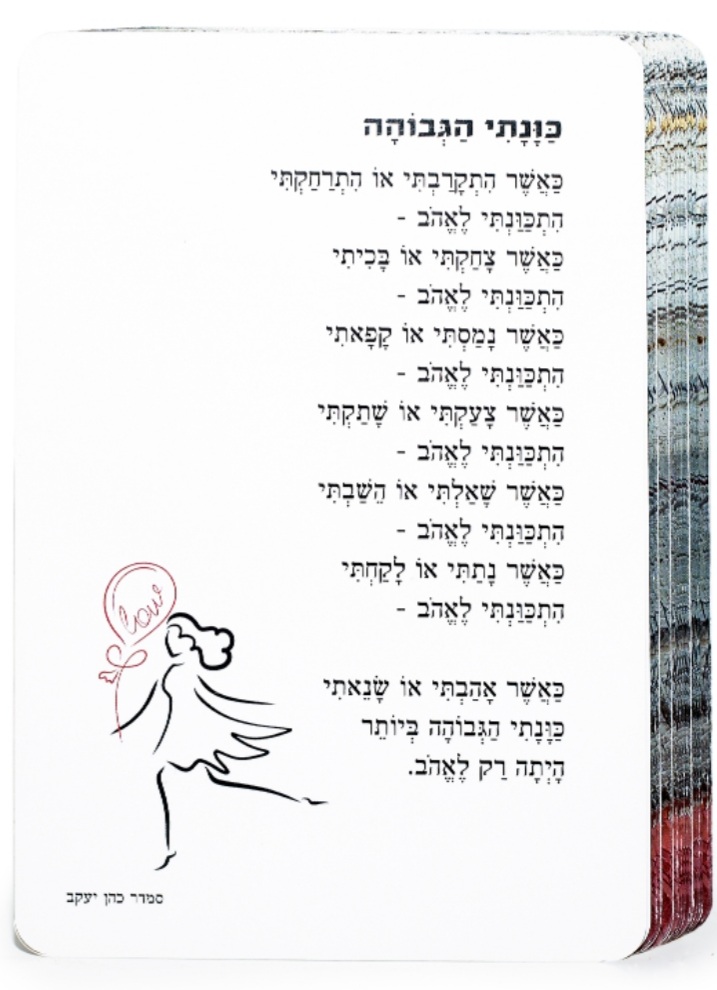 כַּוָּנָתִי הַגְּבוֹהָה
כַּאֲשֶׁר הִתְקָרַבְתִּי אוֹ הִתְרַחַקְתִּי
הִתְכַּוַּנְתִּי לֶאֱהֹב -
כַּאֲשֶׁר צָחַקְתִּי אוֹ בָּכִיתִי
הִתְכַּוַּנְתִּי לֶאֱהֹב -
כַּאֲשֶׁר נָמַסְתִּי אוֹ קָפָאתִי
הִתְכַּוַּנְתִּי לֶאֱהֹב -
כַּאֲשֶׁר צָעַקְתִּי אוֹ שָׁתַקְתִּי
הִתְכַּוַּנְתִּי לֶאֱהֹב -
כַּאֲשֶׁר שָׁאַלְתִּי אוֹ הֵשַׁבְתִּי
הִתְכַּוַּנְתִּי לֶאֱהֹב -
כַּאֲשֶׁר נָתַתִּי אוֹ לָקַחְתִּי
הִתְכַּוַּנְתִּי לֶאֱהֹב -
כַּאֲשֶׁר אָהַבְתִּי אוֹ שָׂנֵאתִי
כַּוָּנָתִי הַגְּבוֹהָה בְּיוֹתֵר
הָיְתָה רַק לֶאֱהֹב.
love
סמדר כהן יעקב